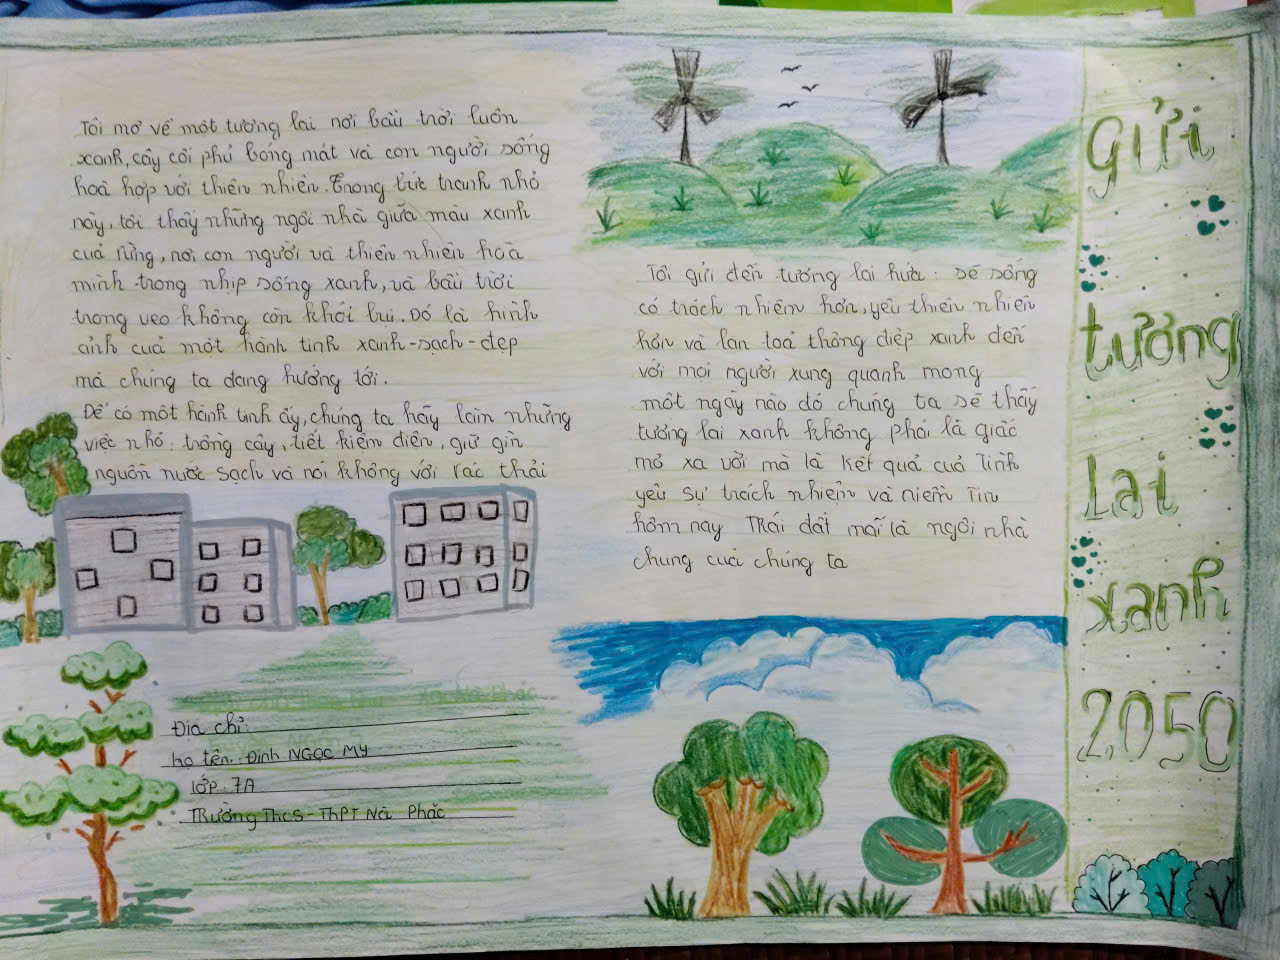 Tôi mơ về một tương lai nơi bầu trời luôn
xanh, cây cối phủ bóng mát và con người sống
hoà hợp với thiên nhiên. Trong bức tranh nhỏ
này, tôi thấy những ngôi nhà giữa màu xanh
của rừng, nơi con người và thiên nhiên hoà
mình trong nhịp sống xanh, và bầu trời
trong veo không còn khói bụi. Đó là hình
ảnh của một hành tinh xanh-sạch-đẹp
mà chúng ta đang hướng tới.
Để có một hành tinh ấy, chúng ta hãy làm những
việc nhỏ: trồng cây, tiết kiệm điện, giữ gìn
nguồn nước sạch và nói không với rác thải
Tôi gửi đến tương lai hứa: sẽ sống
có trách nhiệm hơn, yêu thiên nhiên
hơn và lan toả thông điệp xanh đến
với mọi người xung quanh mong
một ngày nào đó chúng ta sẽ thấy
tương lai xanh không phải là giấc
mơ xa vời mà là kết quả của Tình
yêu sự trách nhiệm và niềm Tin
hôm nay Trái đất mãi là ngôi nhà
chung của chúng ta
Địa chỉ:
họ tên. Đinh NGỌC My
lớp. 7A
TRường THCS-THPT Nà Phặc
Gửi
tương
Lai
xanh
2050